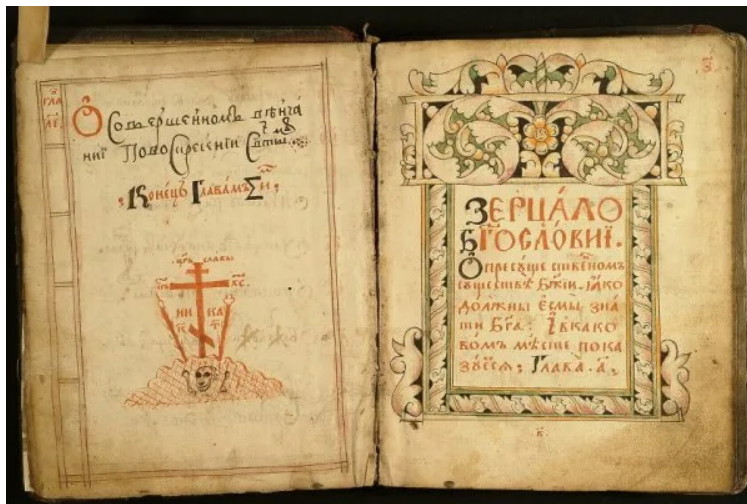 ГЛА
О Совершенномъ вѣнча
нїи Повоскресенїи Свты
Конецъ Главамъ
црь славы
їс хс
НИ КА
З
ЗЕРЦАЛО
БГОСЛОВИЇ.
О пресꙋщественомъ
сꙋществѣ Бжїи. Ꙗко
должны есмы зна
ти Бга: І вкако
вомъ мѣсте пока
зꙋсѧ; Глава. а҃,
к